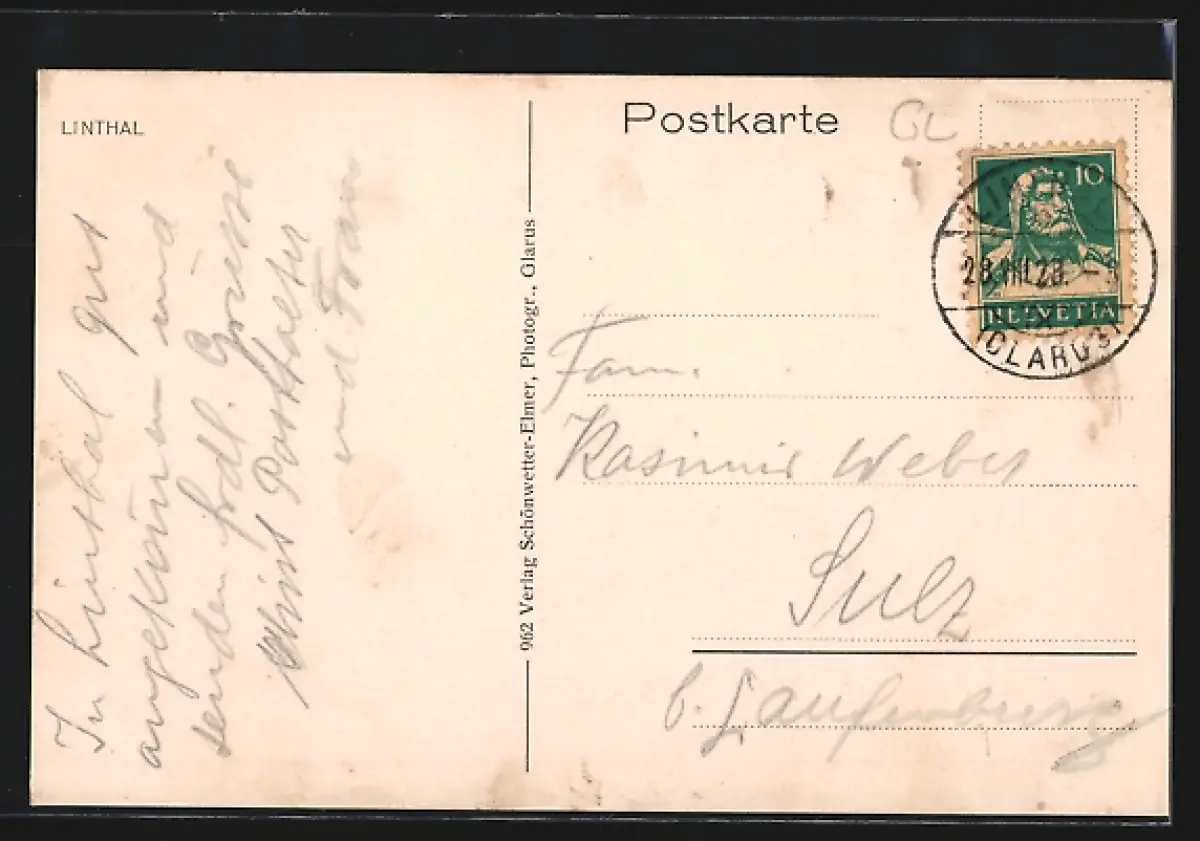 LINTHAL
Postkarte
GL
10
HELVETIA
28.VIII.23.
(GLARUS)
962 Verlag Schönwetter-Elmer, Photogr., Glarus
In Linthal gut
angekommen und
senden frdl. Grüsse
und Frau
Fam.
Kasimir Weber
Sulz
b. Laufenburg